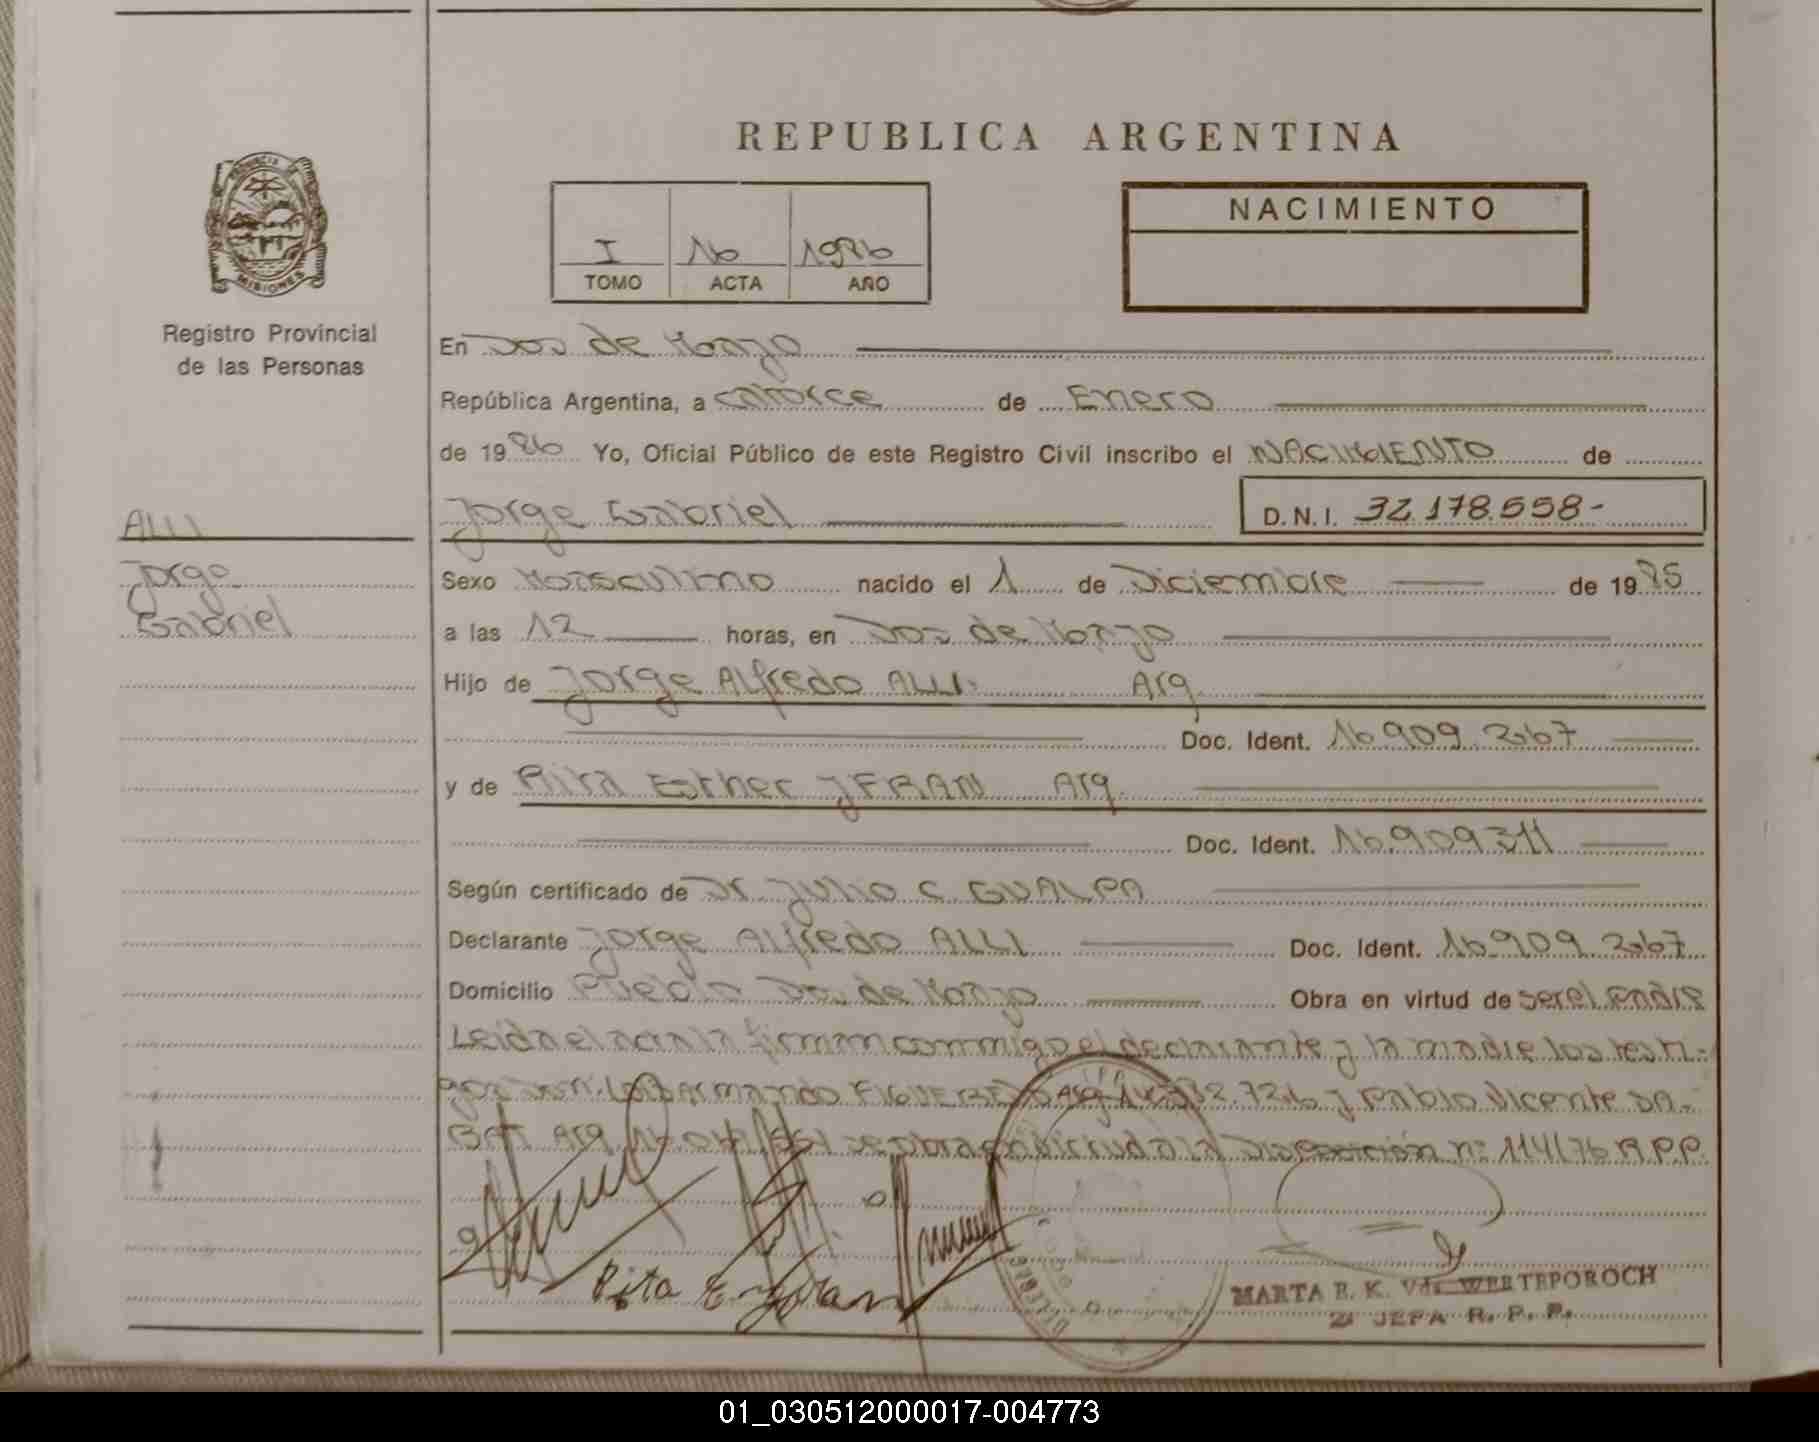 REPUBLICA ARGENTINA
PROVINCIA DE
MISIONES
Registro Provincial
de las Personas
I 16 1986
TOMO ACTA AÑO
NACIMIENTO
En Dos de Mayo
República Argentina, a catorce de Enero
de 1986 Yo, Oficial Público de este Registro Civil inscribo el NACIMIENTO de
Jorge Gabriel D.N.I. 32.178.558-
ALLI
Jorge
Gabriel
Sexo Masculino nacido el 1 de Diciembre de 1985
a las 12 horas, en Dos de Mayo
Hijo de Jorge Alfredo ALLI. Arg.
Doc. Ident. 16.909.267
y de Rita Esther JFRAN Arg.
Doc. Ident. 16.909311
Según certificado de Dr. Julio C. GUALPA
Declarante Jorge Alfredo ALLI Doc. Ident. 16.909.267
Domicilio Pueblo Dos de Mayo Obra en virtud de ser el Padre
Leida el acta la firman conmigo el declarante y la madre los testi-
gos Don: Armando FIGUEREDO Arg. y Pablo Vicente
Arg. se obra en virtud a la Disposición nº 114/76 R.P.P.
Rita E.
MARTA E. K. Vda. WERTEPOROCH
2ª JEFA R. P. P.
01_030512000017-004773